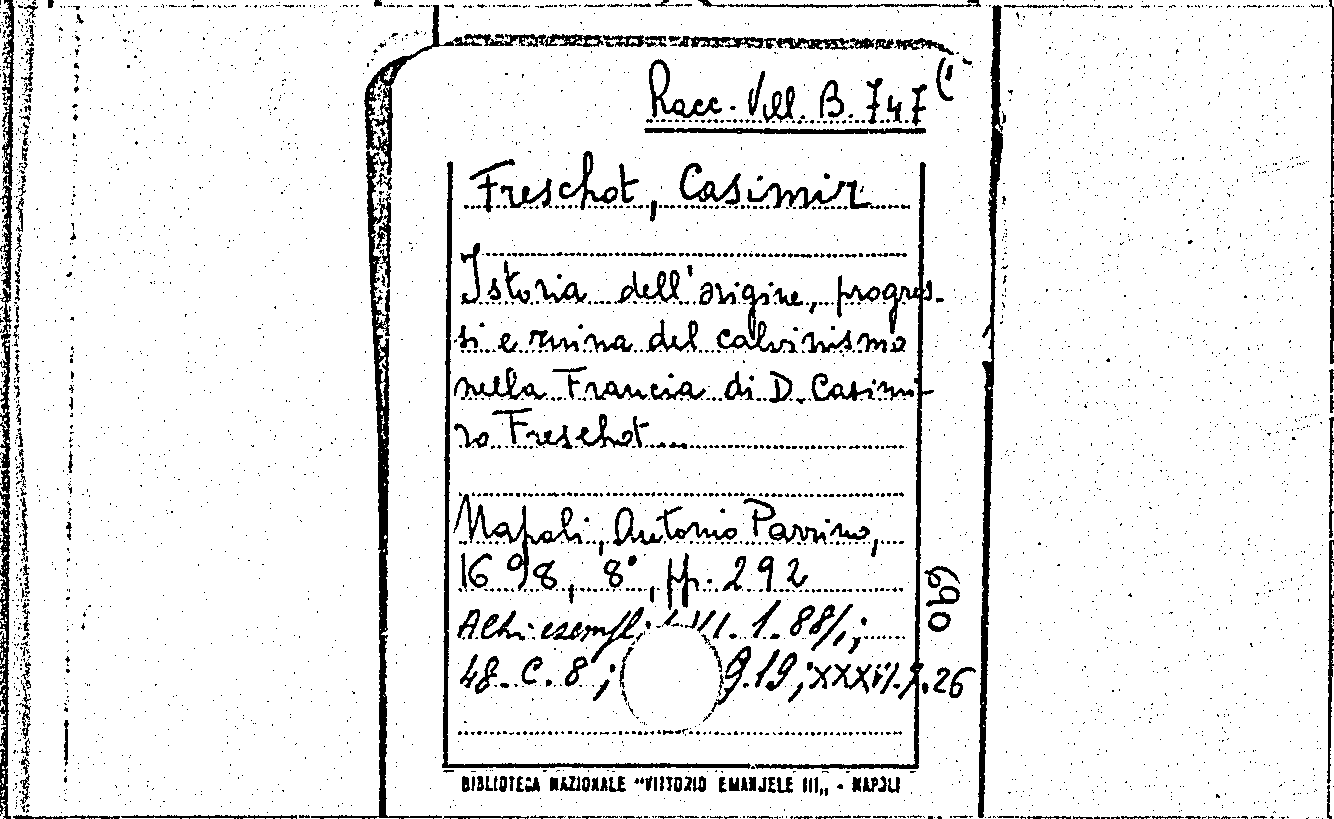 Racc. Vill. B. 747 (1
Freschot, Casimir
Istoria dell'origine, progres-
si e ruina del calvinismo
nella Francia di D. Casimi-
ro Freschot...
Napoli, Antonio Parrino,
1698, 8°, pp. 292
Altri esempl: VI. 1. 88/1;
48. C. 8; 9.19; XXXVI. 9. 26
690
BIBLIOTECA NAZIONALE "VITTORIO EMANUELE III„ - NAPOLI